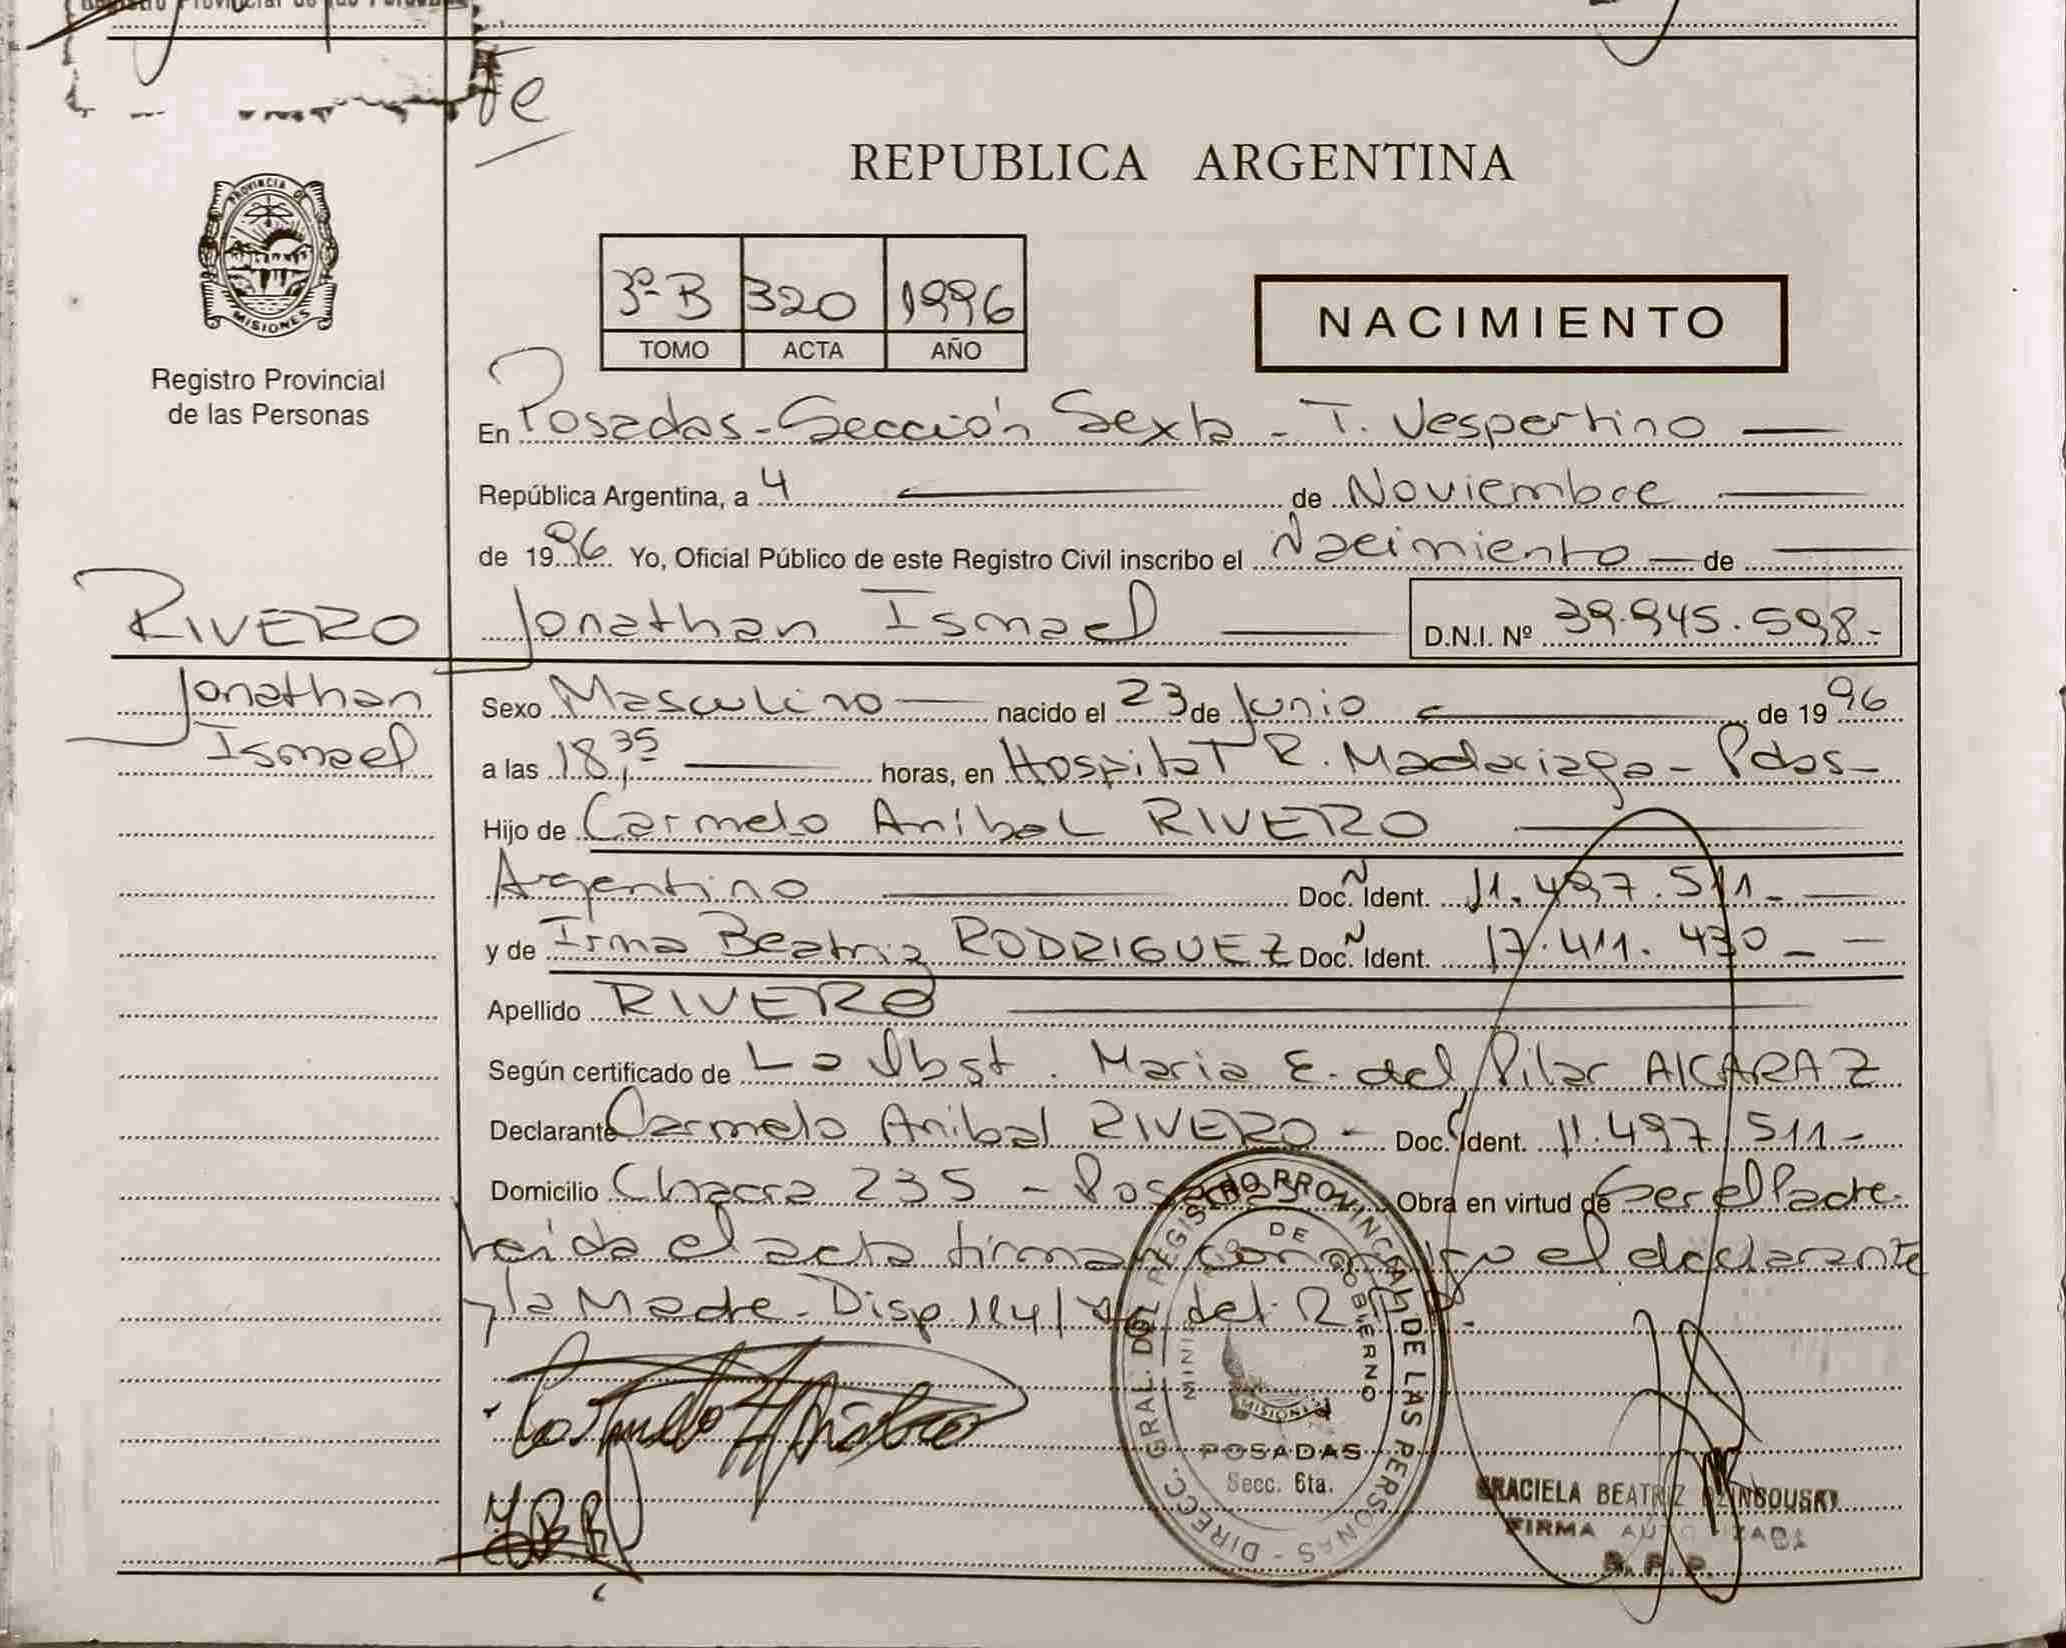 Registro Provincial de las Personas
fe
PROVINCIA DE
MISIONES
Registro Provincial
de las Personas
REPUBLICA ARGENTINA
3º B 320 1996
TOMO ACTA AÑO
NACIMIENTO
En Posadas - Sección Sexta - T. Vespertino
República Argentina, a 4 de Noviembre
de 1996 Yo, Oficial Público de este Registro Civil inscribo el Nacimiento de
RIVERO Jonathan Ismael D.N.I. Nº 39.945.598-
Jonathan
Ismael
Sexo Masculino nacido el 23 de Junio de 1996
a las 18,35 horas, en Hospital R. Madariaga - Pdas -
Hijo de Carmelo Anibal RIVERO
Argentino Doc. Ident. 11.497.511 -
y de Irma Beatriz RODRIGUEZ Doc. Ident. 17.411.430 -
Apellido RIVERO
Según certificado de La Obst. Maria E. del Pilar ALCARAZ
Declarante Carmelo Anibal RIVERO - Doc. Ident. 11.497.511 -
Domicilio Chacra 235 - Posadas Obra en virtud de Ser el Padre.
Leida el acta firman conmigo el declarante
y la Madre - Disp. 114/ del R.P.P.
DIRECC. GRAL. DEL REGISTRO PROVINCIAL DE LAS PERSONAS -
MINISTERIO DE GOBIERNO
MISIONES
POSADAS
Secc. 6ta.
GRACIELA BEATRIZ
FIRMA AUTORIZADA
R. P. P.